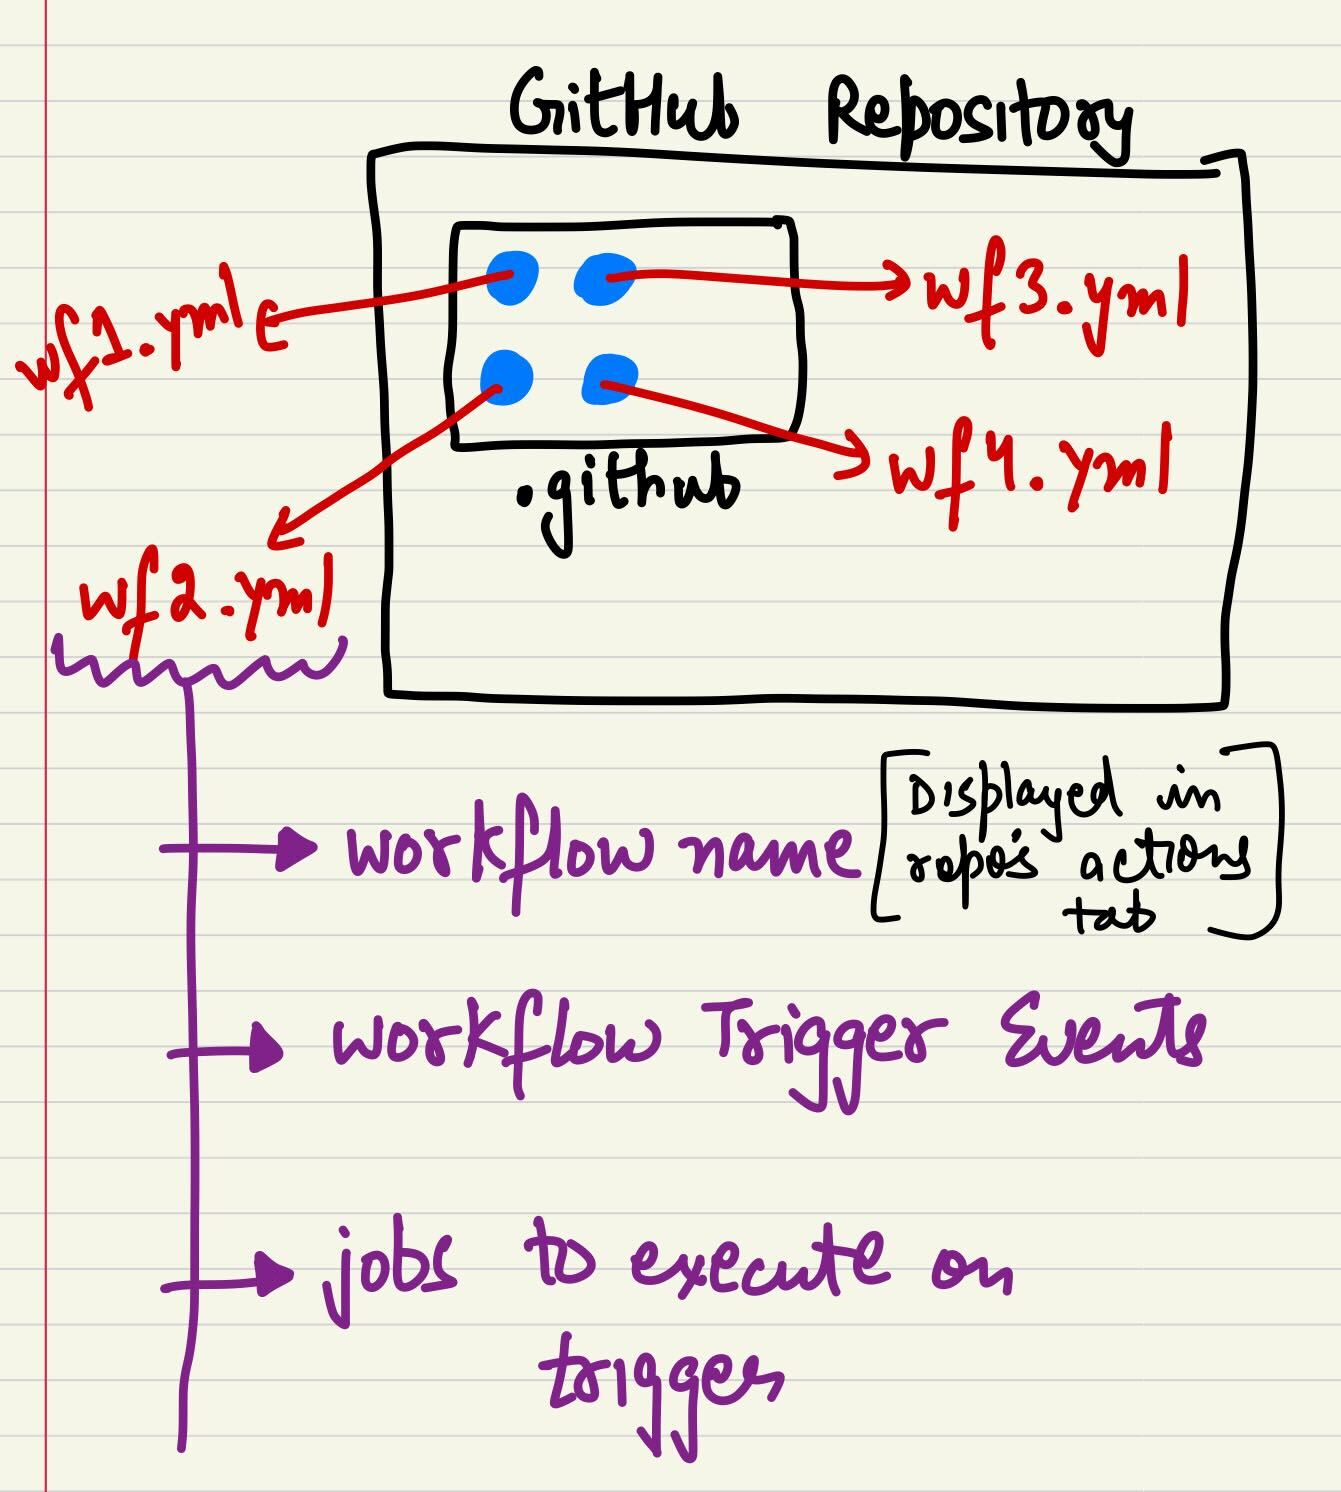 GitHub Repository
wf1.yml
wf3.yml
wf4.yml
.github
wf2.yml
workflow name
[Displayed in
repo's actions
tab]
workflow Trigger Events
jobs to execute on
trigger